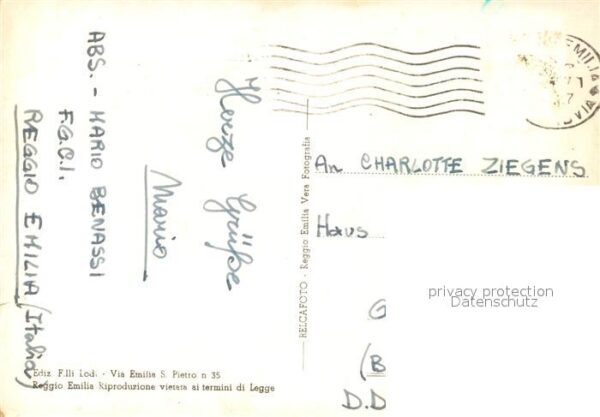 ABS. - MARIO BENASSI
F.G.C.I.
REGGIO EMILIA (Italia)
Herze Grüße
Mario
RELCAFOTO - Reggio Emilia Vera Fotografia
EMILIA
An CHARLOTTE ZIEGENS
Haus
G
(B
D.D
privacy protection
Datenschutz
Ediz. F.lli Lodi - Via Emilia S. Pietro n 35
Reggio Emilia Riproduzione vietata ai termini di Legge